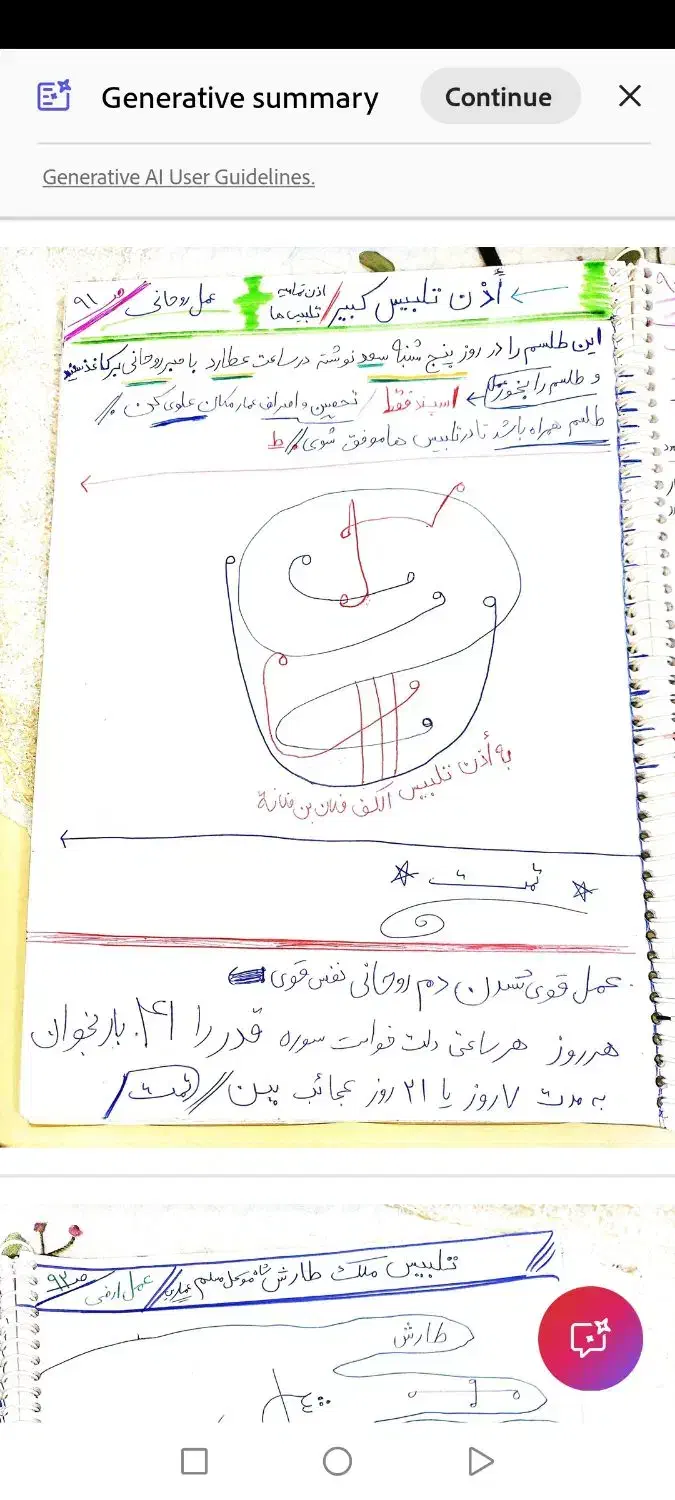 Generative summary
Continue
Generative AI User Guidelines.
أذن تلبیس کبیر / اذن تمامیه تلبیس ها
عمل روحانی
ص ۹۱
این طلسم را در روز پنج شنبه سعد نوشته در ساعت عطارد با حبر روحانی بر کاغذ سفید
و طلسم را بخور اسپند فقط / تحصین و اصراف عمار مکان علوی کن
طلسم همراه باشد تا در تلبیس ها موفق شوی // ط
به أذن تلبیس الکف فلان بن فلانة
تمت
عمل قوی شدن دم روحانی نفس قوی
هر روز هر ساعتی دلت خواست سوره قدر را ۴۱ بار بخوان
به مدت ۷ روز یا ۲۱ روز عجائب ببین // تمت
تلبیس ملک طارش
عمل ارضی
ص ۹۲
طارش